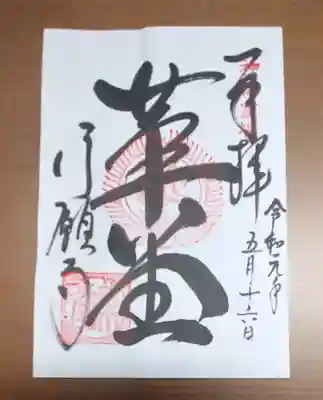 奉拝
令和元年
五月十六日
革堂
行願寺